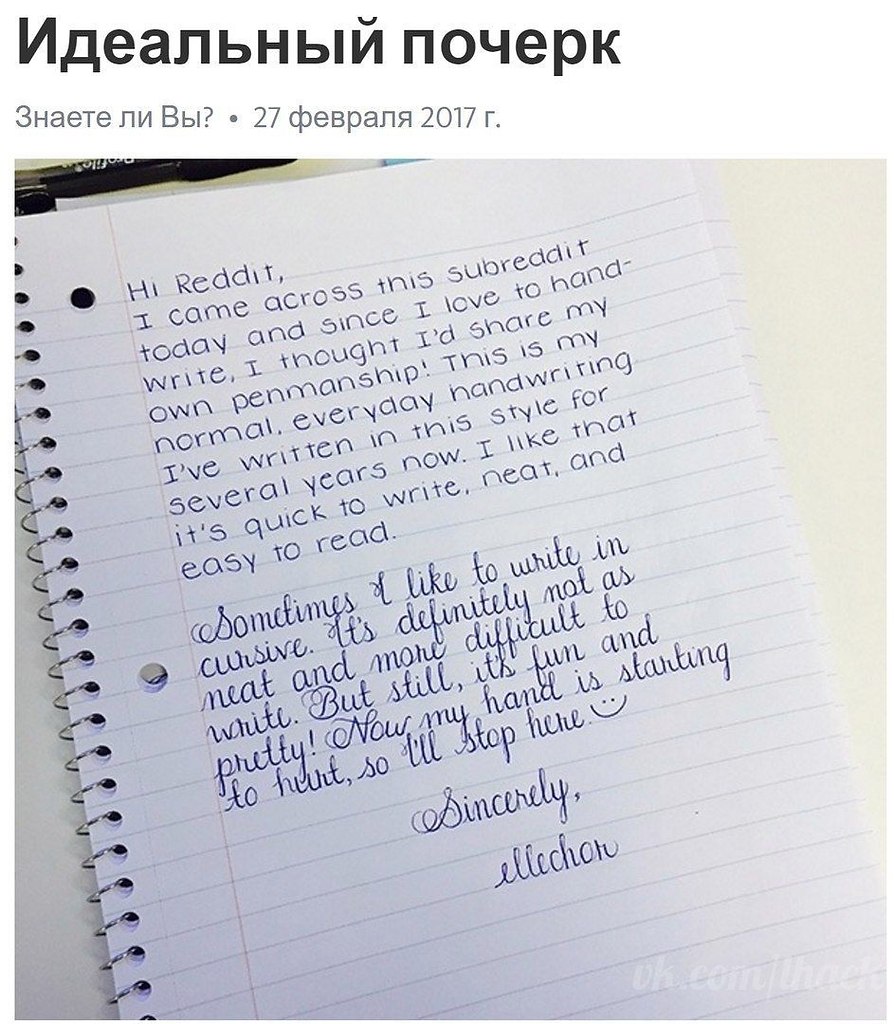 Идеальный почерк
Знаете ли Вы? • 27 февраля 2017 г.
Profile
Hi Reddit,
I came across this subreddit
today and since I love to hand-
write, I thought I'd share my
own penmanship! This is my
normal, everyday handwriting
I've written in this style for
several years now. I like that
it's quick to write, neat, and
easy to read.
Sometimes I like to write in
cursive. It's definitely not as
neat and more difficult to
write. But still, it's fun and
pretty! Now my hand is starting
to hurt, so I'll stop here.
Sincerely,
ellechor
vk.com/lhack